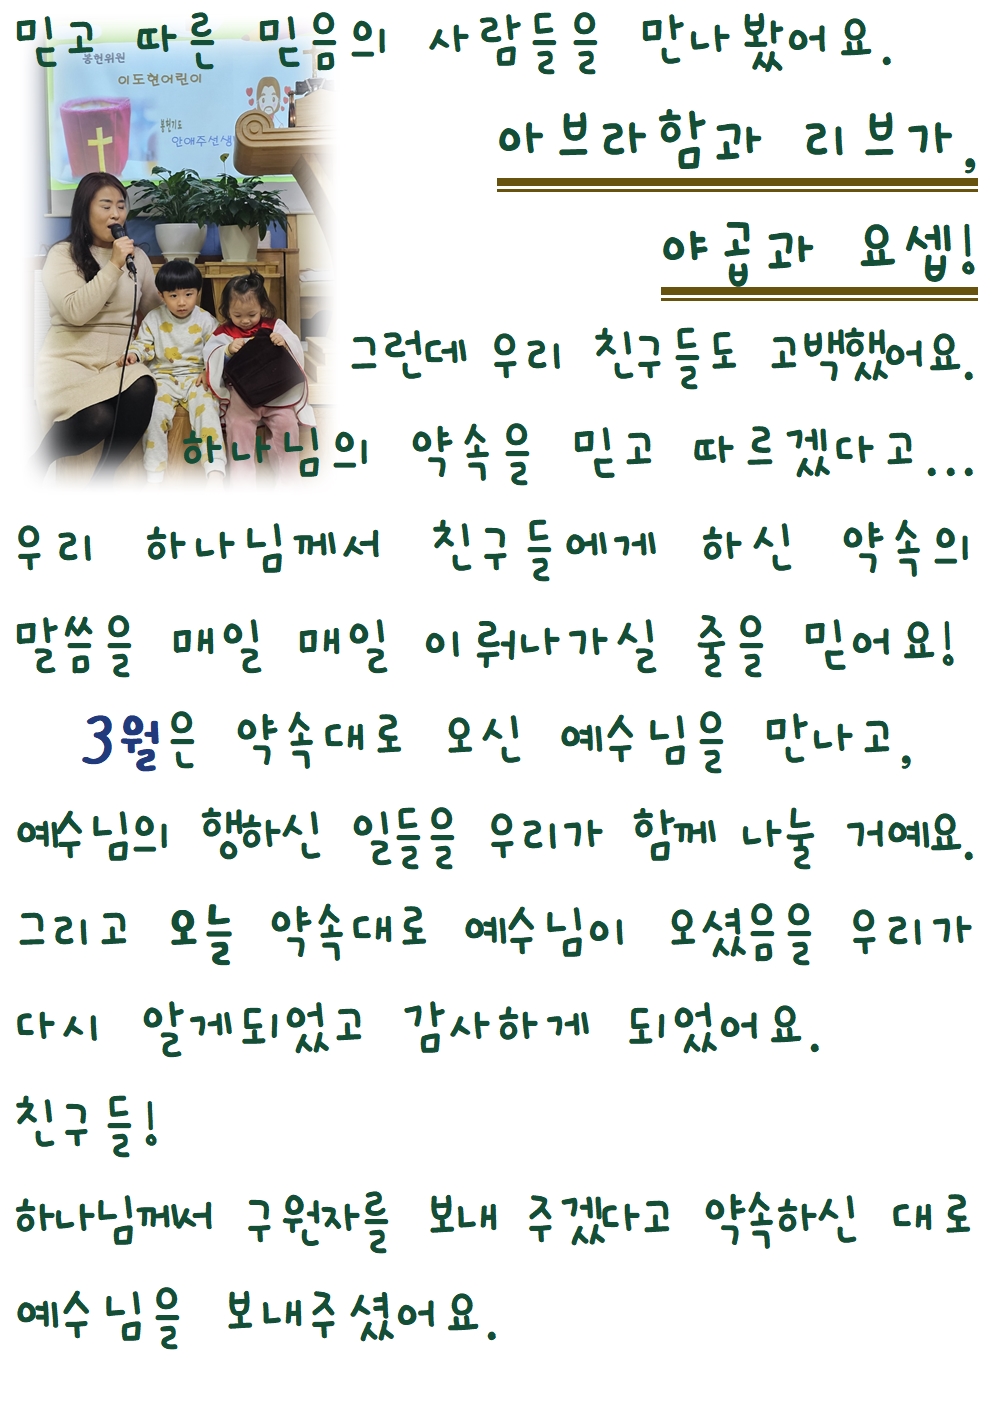 믿고 따른 믿음의 사람들을 만나봤어요.
봉헌위원
이도현어린이
봉헌기도
안애주선생
아브라함과 리브가,
야곱과 요셉!
그런데 우리 친구들도 고백했어요.
하나님의 약속을 믿고 따르겠다고...
우리 하나님께서 친구들에게 하신 약속의
말씀을 매일 매일 이뤄나가실 줄을 믿어요!
3월은 약속대로 오신 예수님을 만나고,
예수님의 행하신 일들을 우리가 함께 나눌 거예요.
그리고 오늘 약속대로 예수님이 오셨음을 우리가
다시 알게되었고 감사하게 되었어요.
친구들!
하나님께서 구원자를 보내 주겠다고 약속하신 대로
예수님을 보내주셨어요.